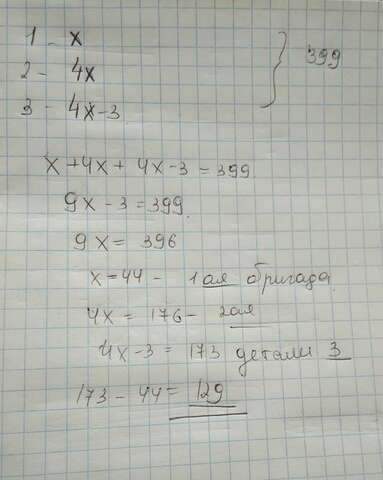 1 - x
2 - 4x
3 - 4x-3
399
x+4x+4x-3=399
9x-3=399
9x= 396
x=44 - 1ая бригада
4x = 176- 2ая
4x-3 = 173 детали 3
173-44= 129